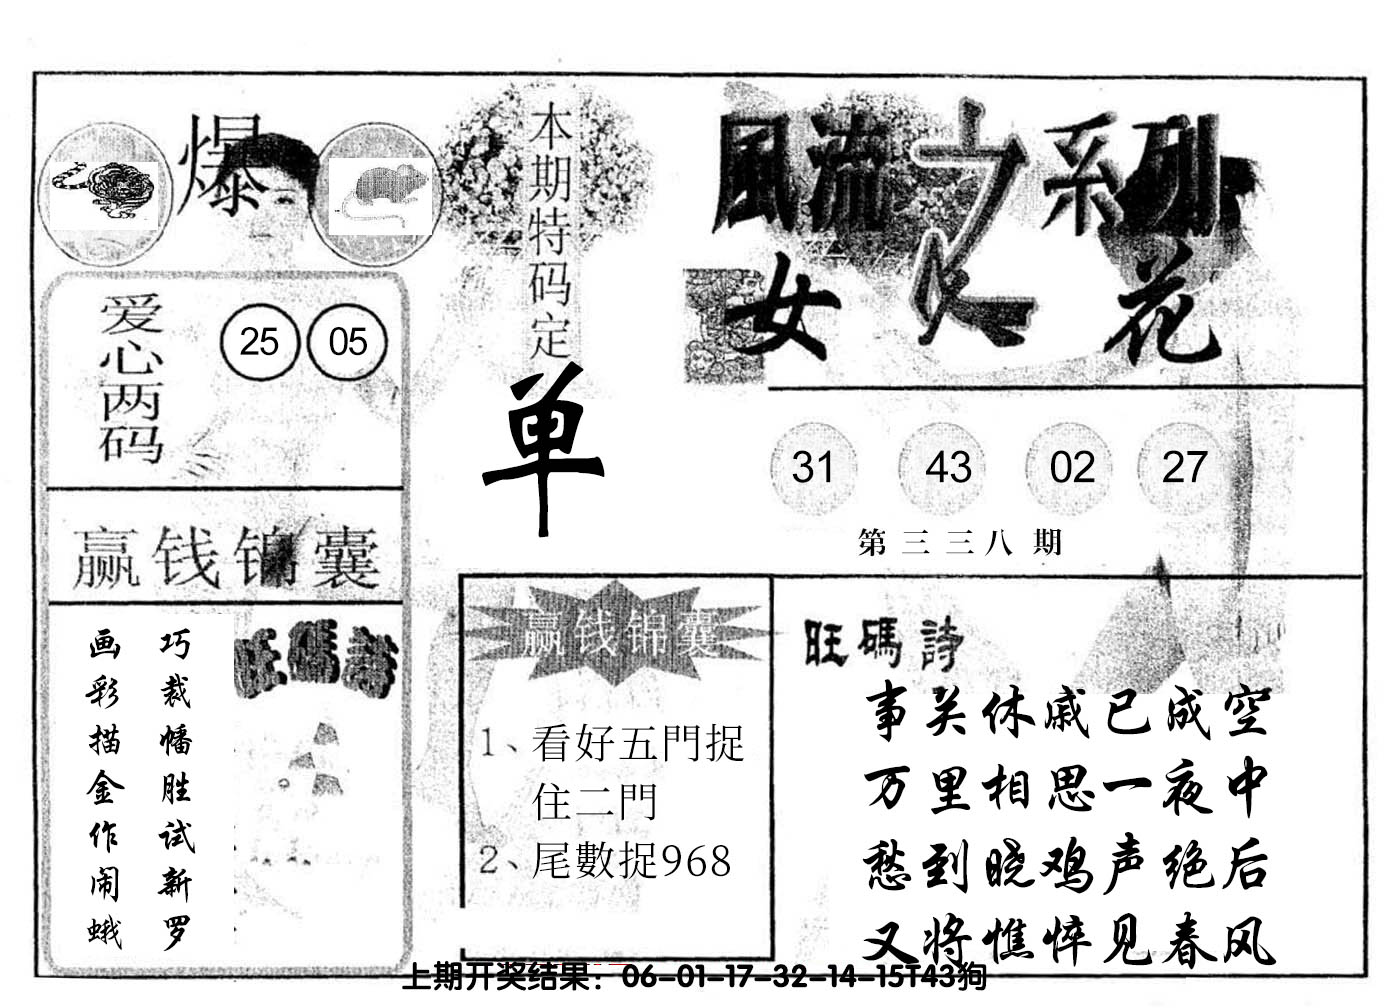 爆
本期特码定
单
風流之系列
女人花
爱心两码
25 05
31 43 02 27
第三三八期
赢钱锦囊
旺碼詩
巧裁幡胜试新罗
画彩描金作闹蛾
赢钱锦囊
1、看好五門捉
住二門
2、尾數捉968
旺碼詩
事关休戚已成空
万里相思一夜中
愁到晓鸡声绝后
又将憔悴见春风
上期开奖结果：06-01-17-32-14-15T43狗